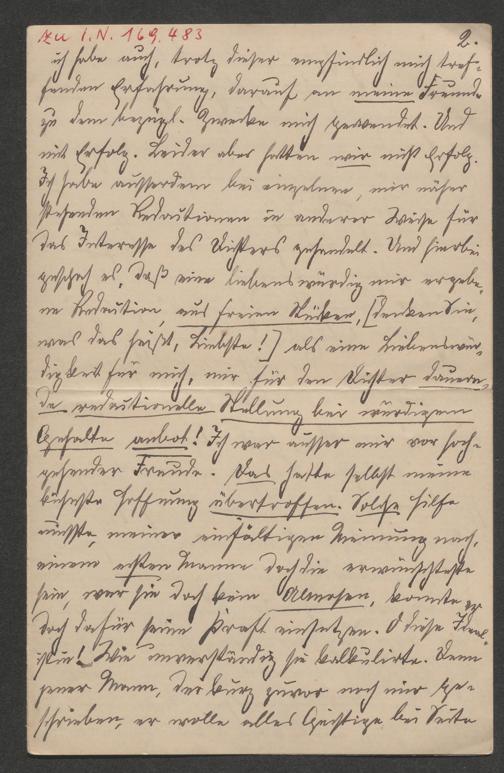 zu I.N. 169.483
2.
ich habe auch, trotz dieser empfindlich mich tref-
fenden Erfahrung, darauf an meine Freunde
zu dem bezügl. Zwecke mich gewendet. Und
mit Erfolg. Leider aber hatten wir nicht Erfolg.
Ich habe ausserdem bei einzelnen, mir näher
stehenden Redactionen in anderer Weise für
das Interesse des Dichters gehandelt. Und hierbei
geschah es, daß eine liebenswürdig mir ergebe-
ne Redaction, aus freien Stücken, [denken Sie,
was das heißt, Liebste!] als eine Liebenswür-
digkeit für mich, mir für den Dichter dauern-
de redactionelle Stellung bei würdigem
Gehalte anbot! Ich war ausser mir vor hoch-
gehender Freude. Das hatte selbst meine
kühnste Hoffnung übertroffen. Solche Hilfe
müsste, meiner einfältigen Meinung nach,
einem ersten Manne doch die erwünschteste
sein, war sie doch kein Almosen, konnte er
doch dafür seine Kraft einsetzen. O diese Ideal-
istin! Wie unverständig sie kalkulirte. Denn
jener Mann, der kurz zuvor noch mir ge-
schrieben, er wolle alles Geistige bei Seite